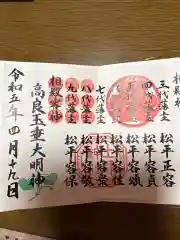 相殿
三代藩主 松平正容
四代藩主 松平容貞
松平容頌
松平容住
七代藩主 松平容衆
八代藩主 松平容敬
九代藩主 松平容保
相殿 神
高良玉垂大明神
令和五年四月十九日